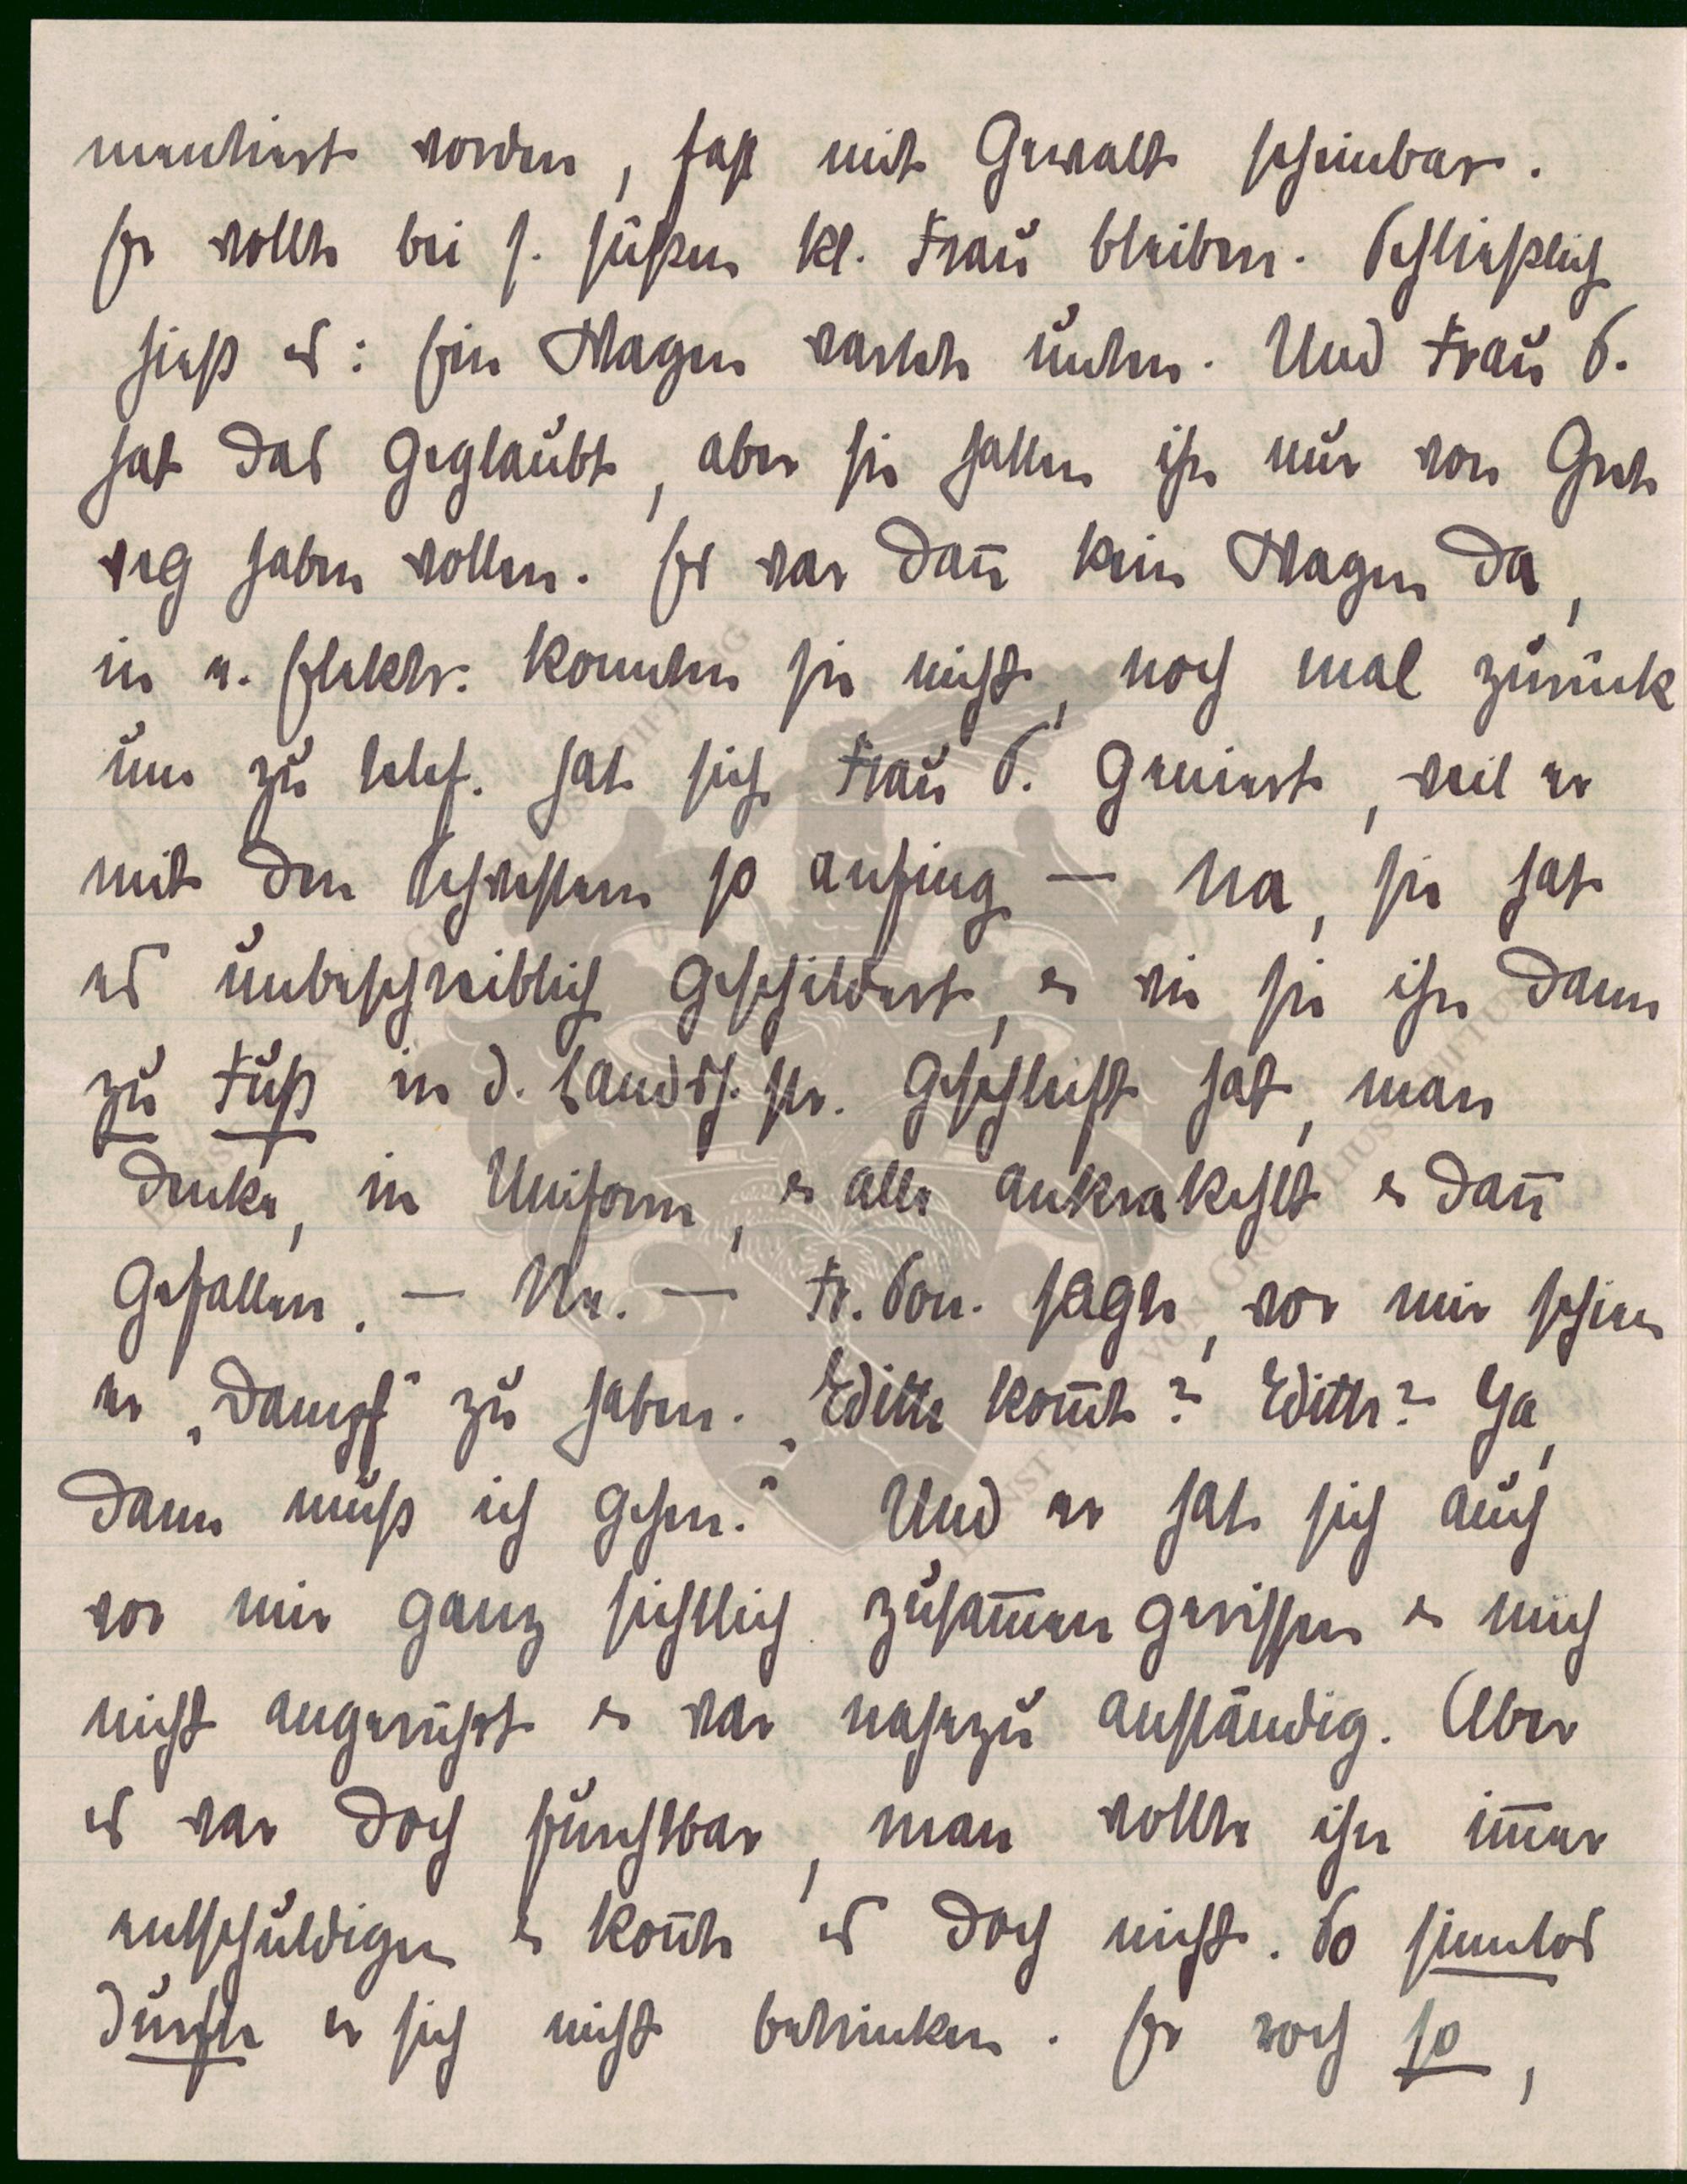 mentiert worden, fast mit Gewalt scheinbar.
Er wollte bei s. süßen kl. Frau bleiben. Schließlich
hieß es: Ein Wagen wartete unten. Und Frau S.
hat das geglaubt, aber sie hatten ihn nur von Grete
weg haben wollen. Es war dan̄ kein Wagen da,
in e. Elektr. konnten sie nicht, noch mal zurück
um zu telef. hat sich Frau S. geniert, weil er
mit den Schwestern so anfing — na, sie hat
es unbeschreiblich geschildert, u wie sie ihn dann
zu Fuß in d. Landsh. str. geschleift hat, man
denke, in Uniform, u alle ankrakehlt u dan̄
gefallen. — Ne. — Fr. Son. sagte, vor mir schien
er „Dampf" zu haben. „Edith kom̄t? Edith? Ja,
dann muß ich gehen." Und er hat sich auch
vor mir ganz sichtlich zusam̄en gerissen u mich
nicht angerührt u war nahezu anständig. Aber
es war doch furchtbar, man wollte ihn im̄er
entschuldigen u kon̄te es doch nicht. So sinnlos
durfte er sich nicht betrinken. Er roch so,
ERNST
VON GR
STIFTUNG